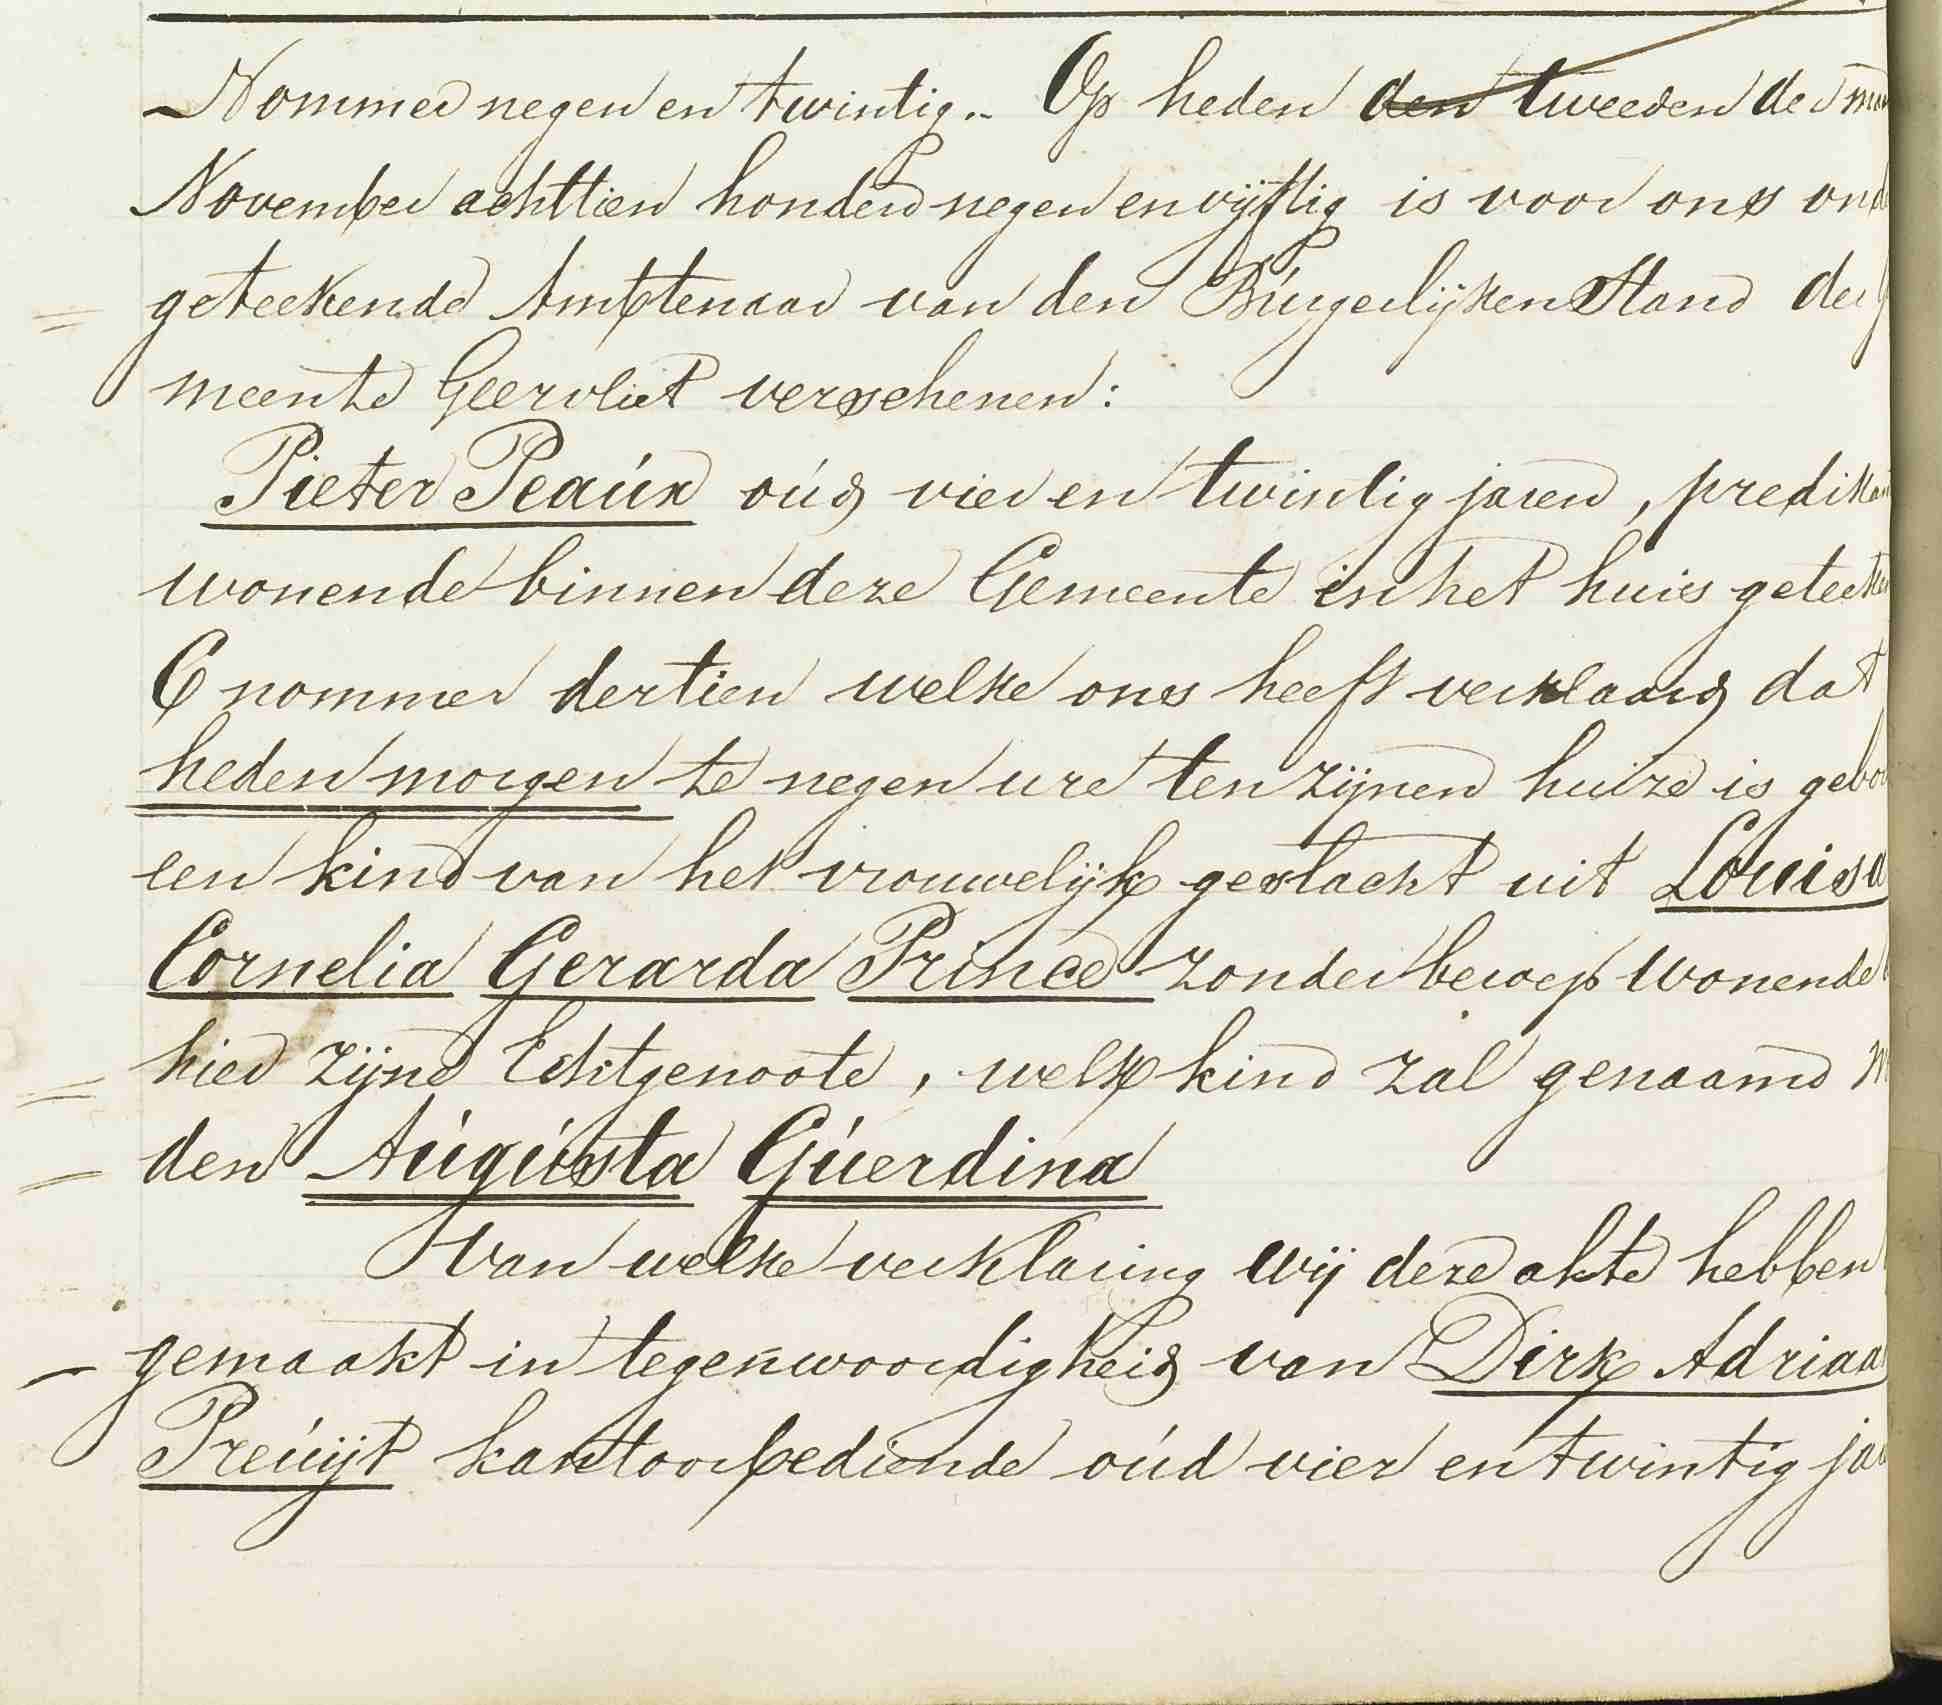 Nommer negen en twintig.. Op heden den tweeden der
November achttien honderd negen en vijftig is voor ons ond
geteekende Ambtenaar van den Burgerlijken Stand der G
meente Geervliet verschenen:
Pieter Peaux oud vier en twintig jaren, predikan
wonende binnen deze Gemeente in het huis geteeken
C nommer dertien welke ons heeft verklaard dat
heden morgen te negen ure ten zijnen huize is gebor
een kind van het vrouwelijk geslacht uit Louisa
Cornelia Gerarda Prince zonder beroep wonende
hier zijne Echtgenoote, welk kind zal genaamd
den Augusta Guerdina
Van welke verklaring wij deze akte hebben
gemaakt in tegenwoordigheid van Dirk Adriaan
Preuijt kantoorbediende oud vier en twintig jar